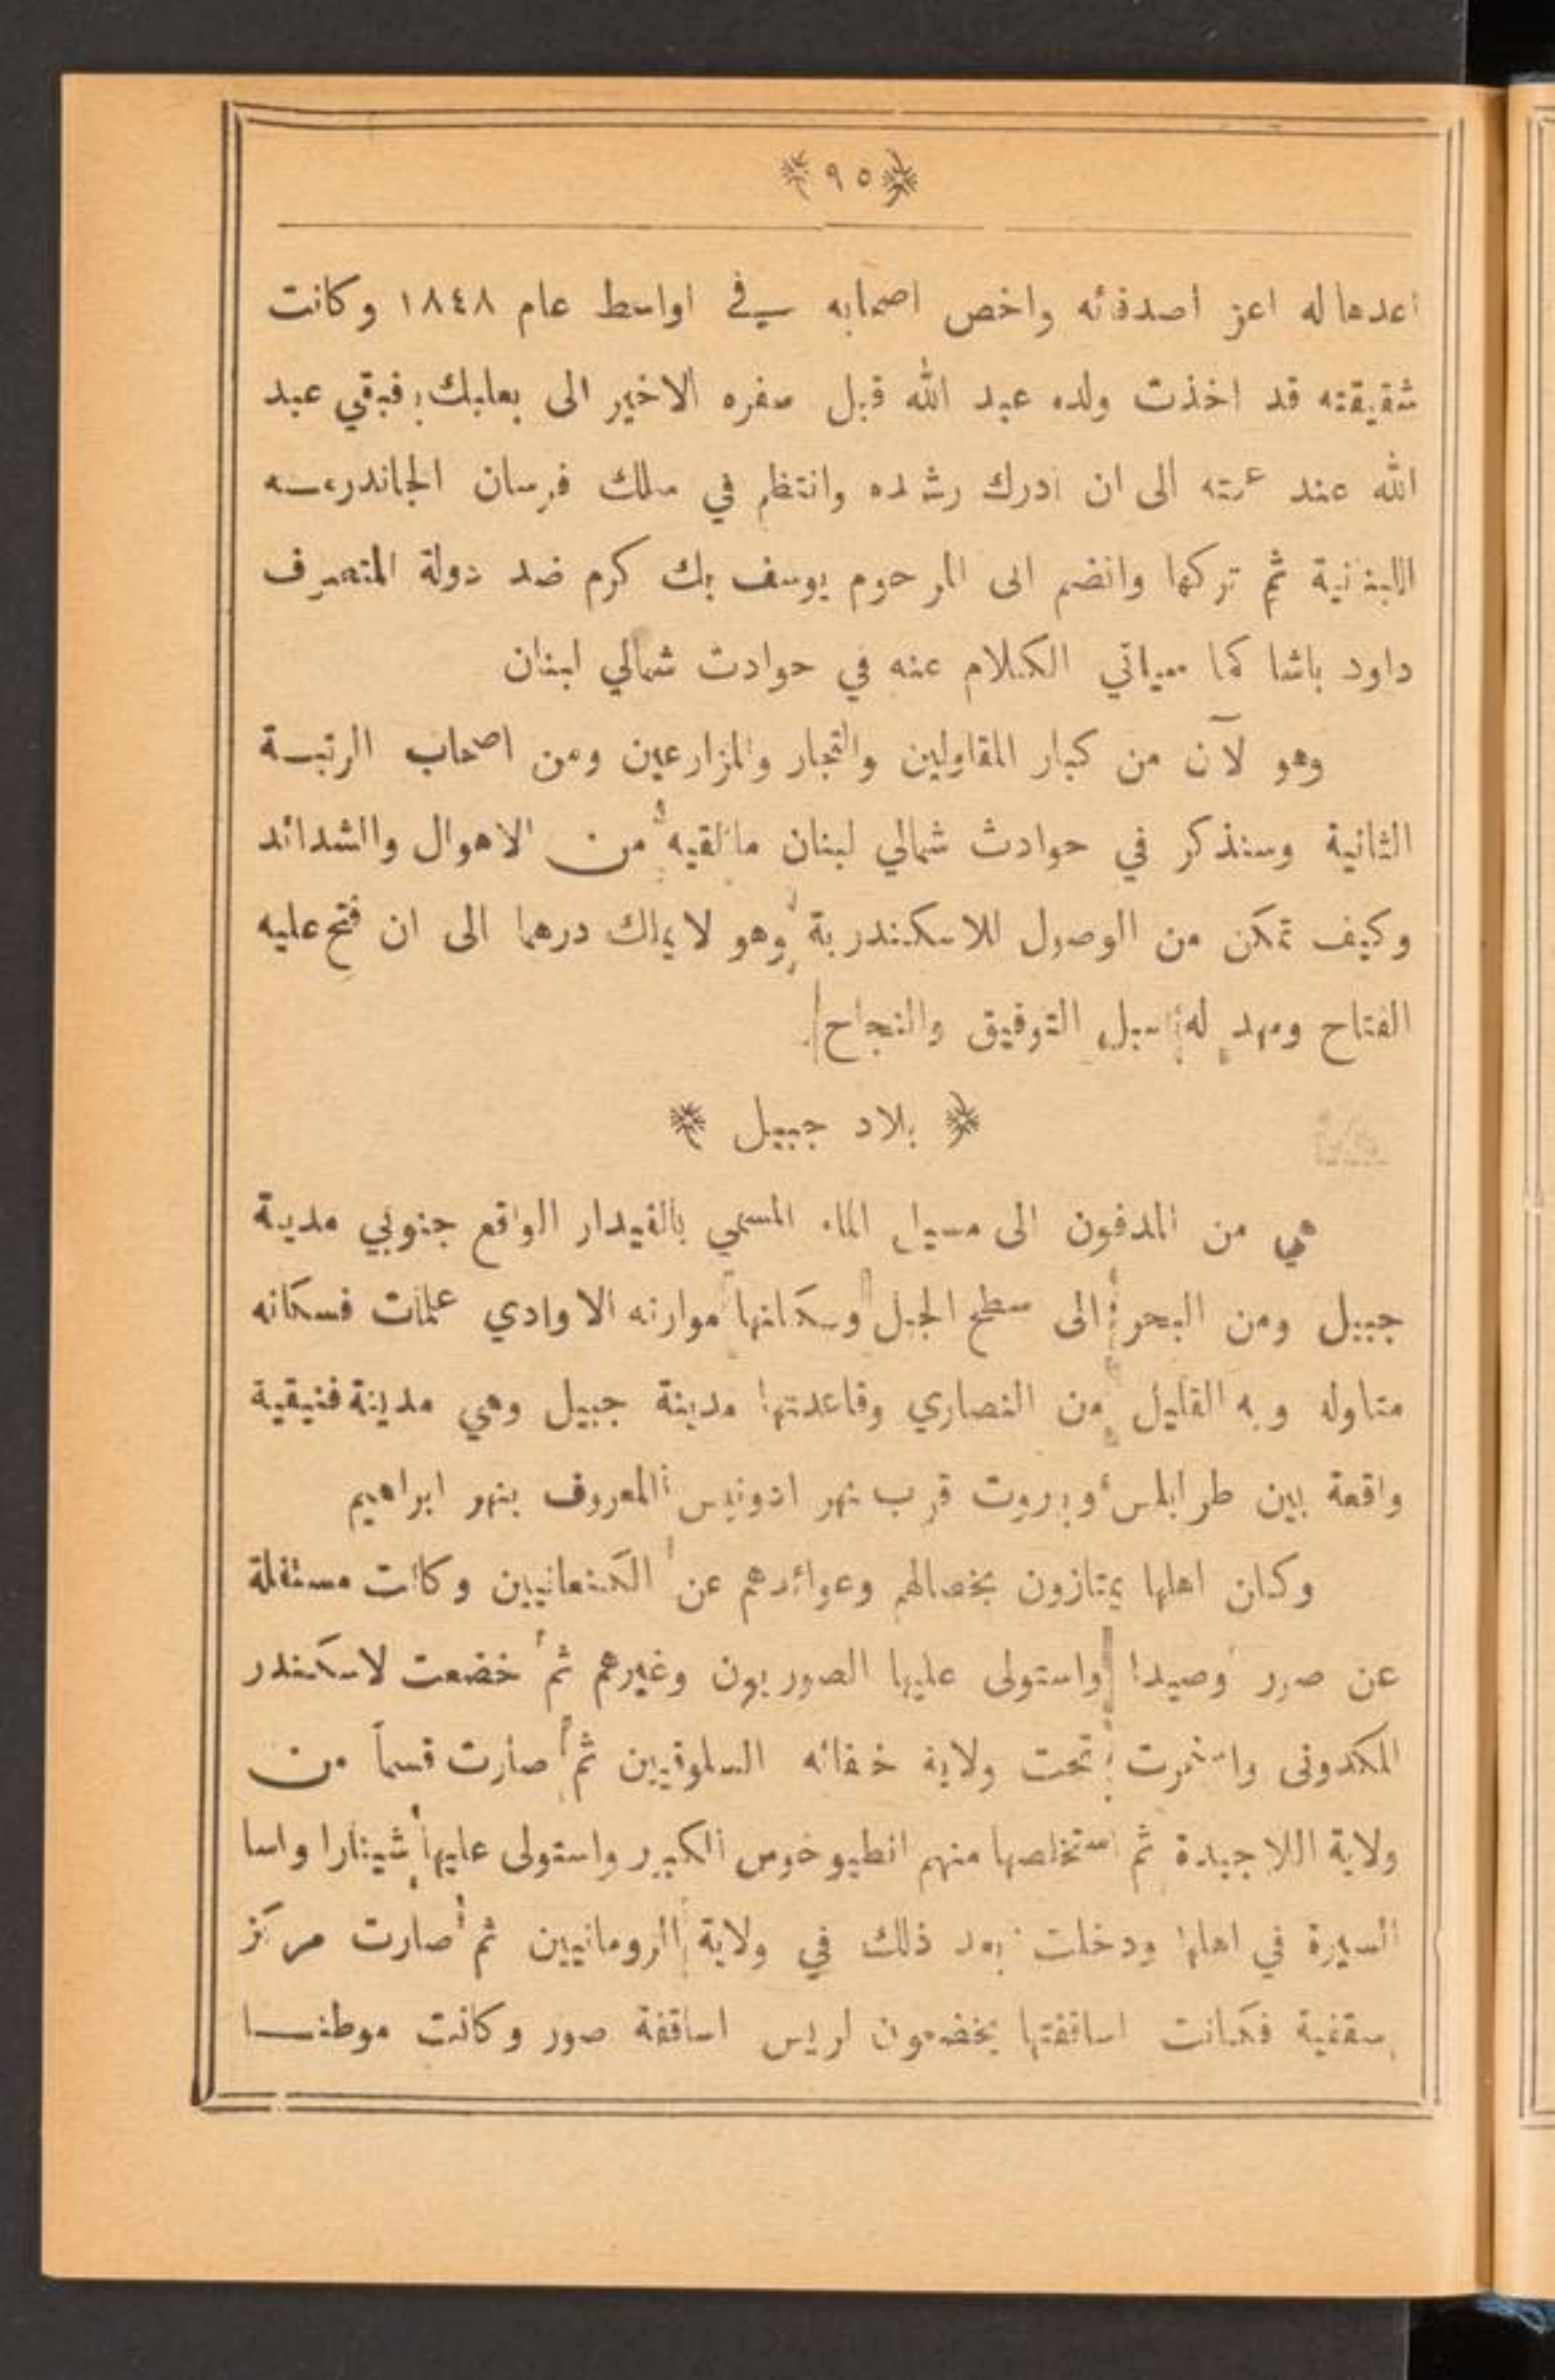 ﴿٩٥﴾
اعدها له اعز اصدقائه واخص اصحابه في اواسط عام ١٨٤٨ وكانت
شقيقته قد اخذت ولده عبد الله قبل سفره الاخير الى بعلبك فبقي عبد
الله عند عمته الى ان ادرك رشده وانتظم في سلك فرسان الجاندرمه
اللبنانية ثم تركها وانضم الى المرحوم يوسف بك كرم ضد دولة المتصرف
داود باشا كما سياتي الكلام عنه في حوادث شمالي لبنان
وهو لآن من كبار المقاولين والتجار والمزارعين ومن اصحاب الرتبة
الثانية وسنذكر في حوادث شمالي لبنان مالقيه من الاهوال والشدائد
وكيف تمكن من الوصول للاسكندرية وهو لا يملك درهما الى ان فتح عليه
الفتاح ومهد له سبل التوفيق والنجاح
﴿ بلاد جبيل ﴾
هي من المدفون الى مسيل الماء المسمي بالفيدار الواقع جنوبي مدينة
جبيل ومن البحر الى سطح الجبل وسكانها موارنه الا وادي علمات فسكانه
متاوله وبه القليل من النصاري وقاعدتها مدينة جبيل وهي مدينة فنيقية
واقعة بين طرابلس وبيروت قرب نهر ادونيس المعروف بنهر ابراهيم
وكان اهلها يمتازون بخصالهم وعوائدهم عن الكنعانيين وكانت مستقلة
عن صور وصيدا واستولى عليها الصوريون وغيرهم ثم خضعت لاسكندر
المكدونى واستمرت تحت ولاية خلفائه السلوقيين ثم صارت قسماً من
ولاية اللاجيدة ثم استخلصها منهم انطيوخوس الكبير واستولى عليها شينارا واسا
السيرة في اهلها ودخلت بعد ذلك في ولاية الرومانيين ثم صارت مركز
سقفية فكانت اساقفتها يخضعون لريس اساقفة صور وكانت موطنا